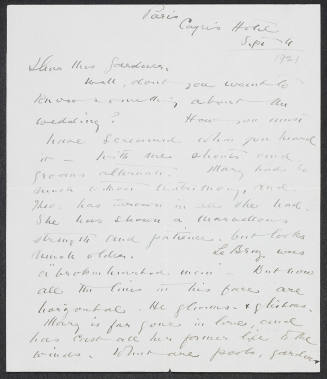 Paris
Cayré Hotel
Sept 4
1921
Dear Mrs Gardner.
Well, don't you want to
know something about the
wedding? How you must
have screamed when you heard
it – with me shouts and
groans alternate. Mary had to
much without testimony, and
has thrown in all she had.
She has shown a marvellous
strength and patience. but looks
much older. Le Bray was
a "broken hearted man". But now
all the lines in his face are
horizontal. He glooms & glistens.
Mary is far gone in love, and
has cast all her former life to the
winds. What are pools, gardens